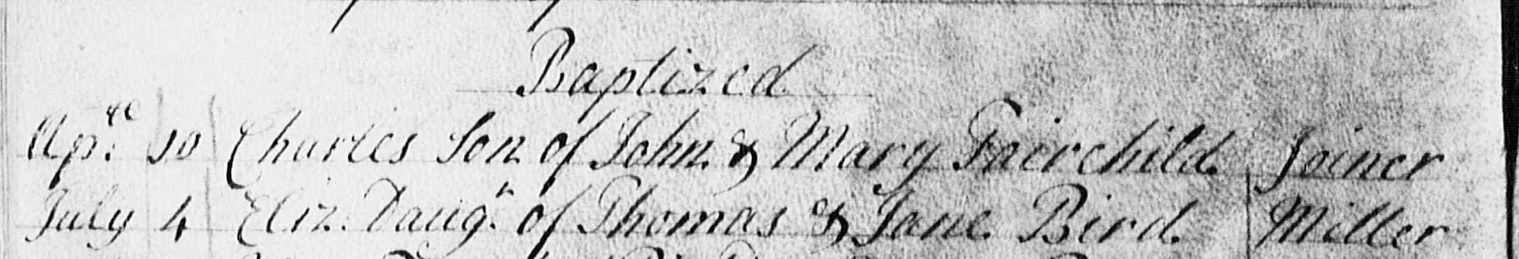 Baptized
Ap.ͤ 10 Charles Son of John & Mary Fairchild Joiner
July 4 Eliz. Daugʳ of Thomas & Jane Bird Miller